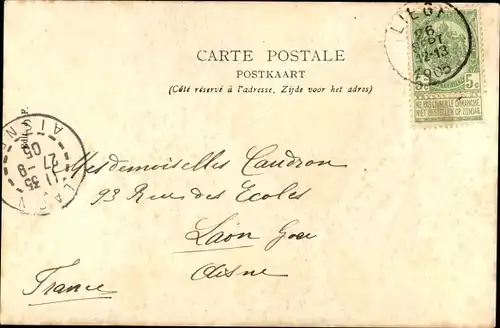 CARTE POSTALE
POSTKAART
(Côté réservé à l'adresse. Zijde voor het adres)
26
SEPT
12-13
1905
5c 5c
NE PAS LIVRER LE DIMANCHE
NIET BESTELLEN OP ZONDAG
LAON
AISNE
11 35
27 -9
05
Mesdemoiselles Caudron
93 Rue des Ecoles
Laon
Aisne
France